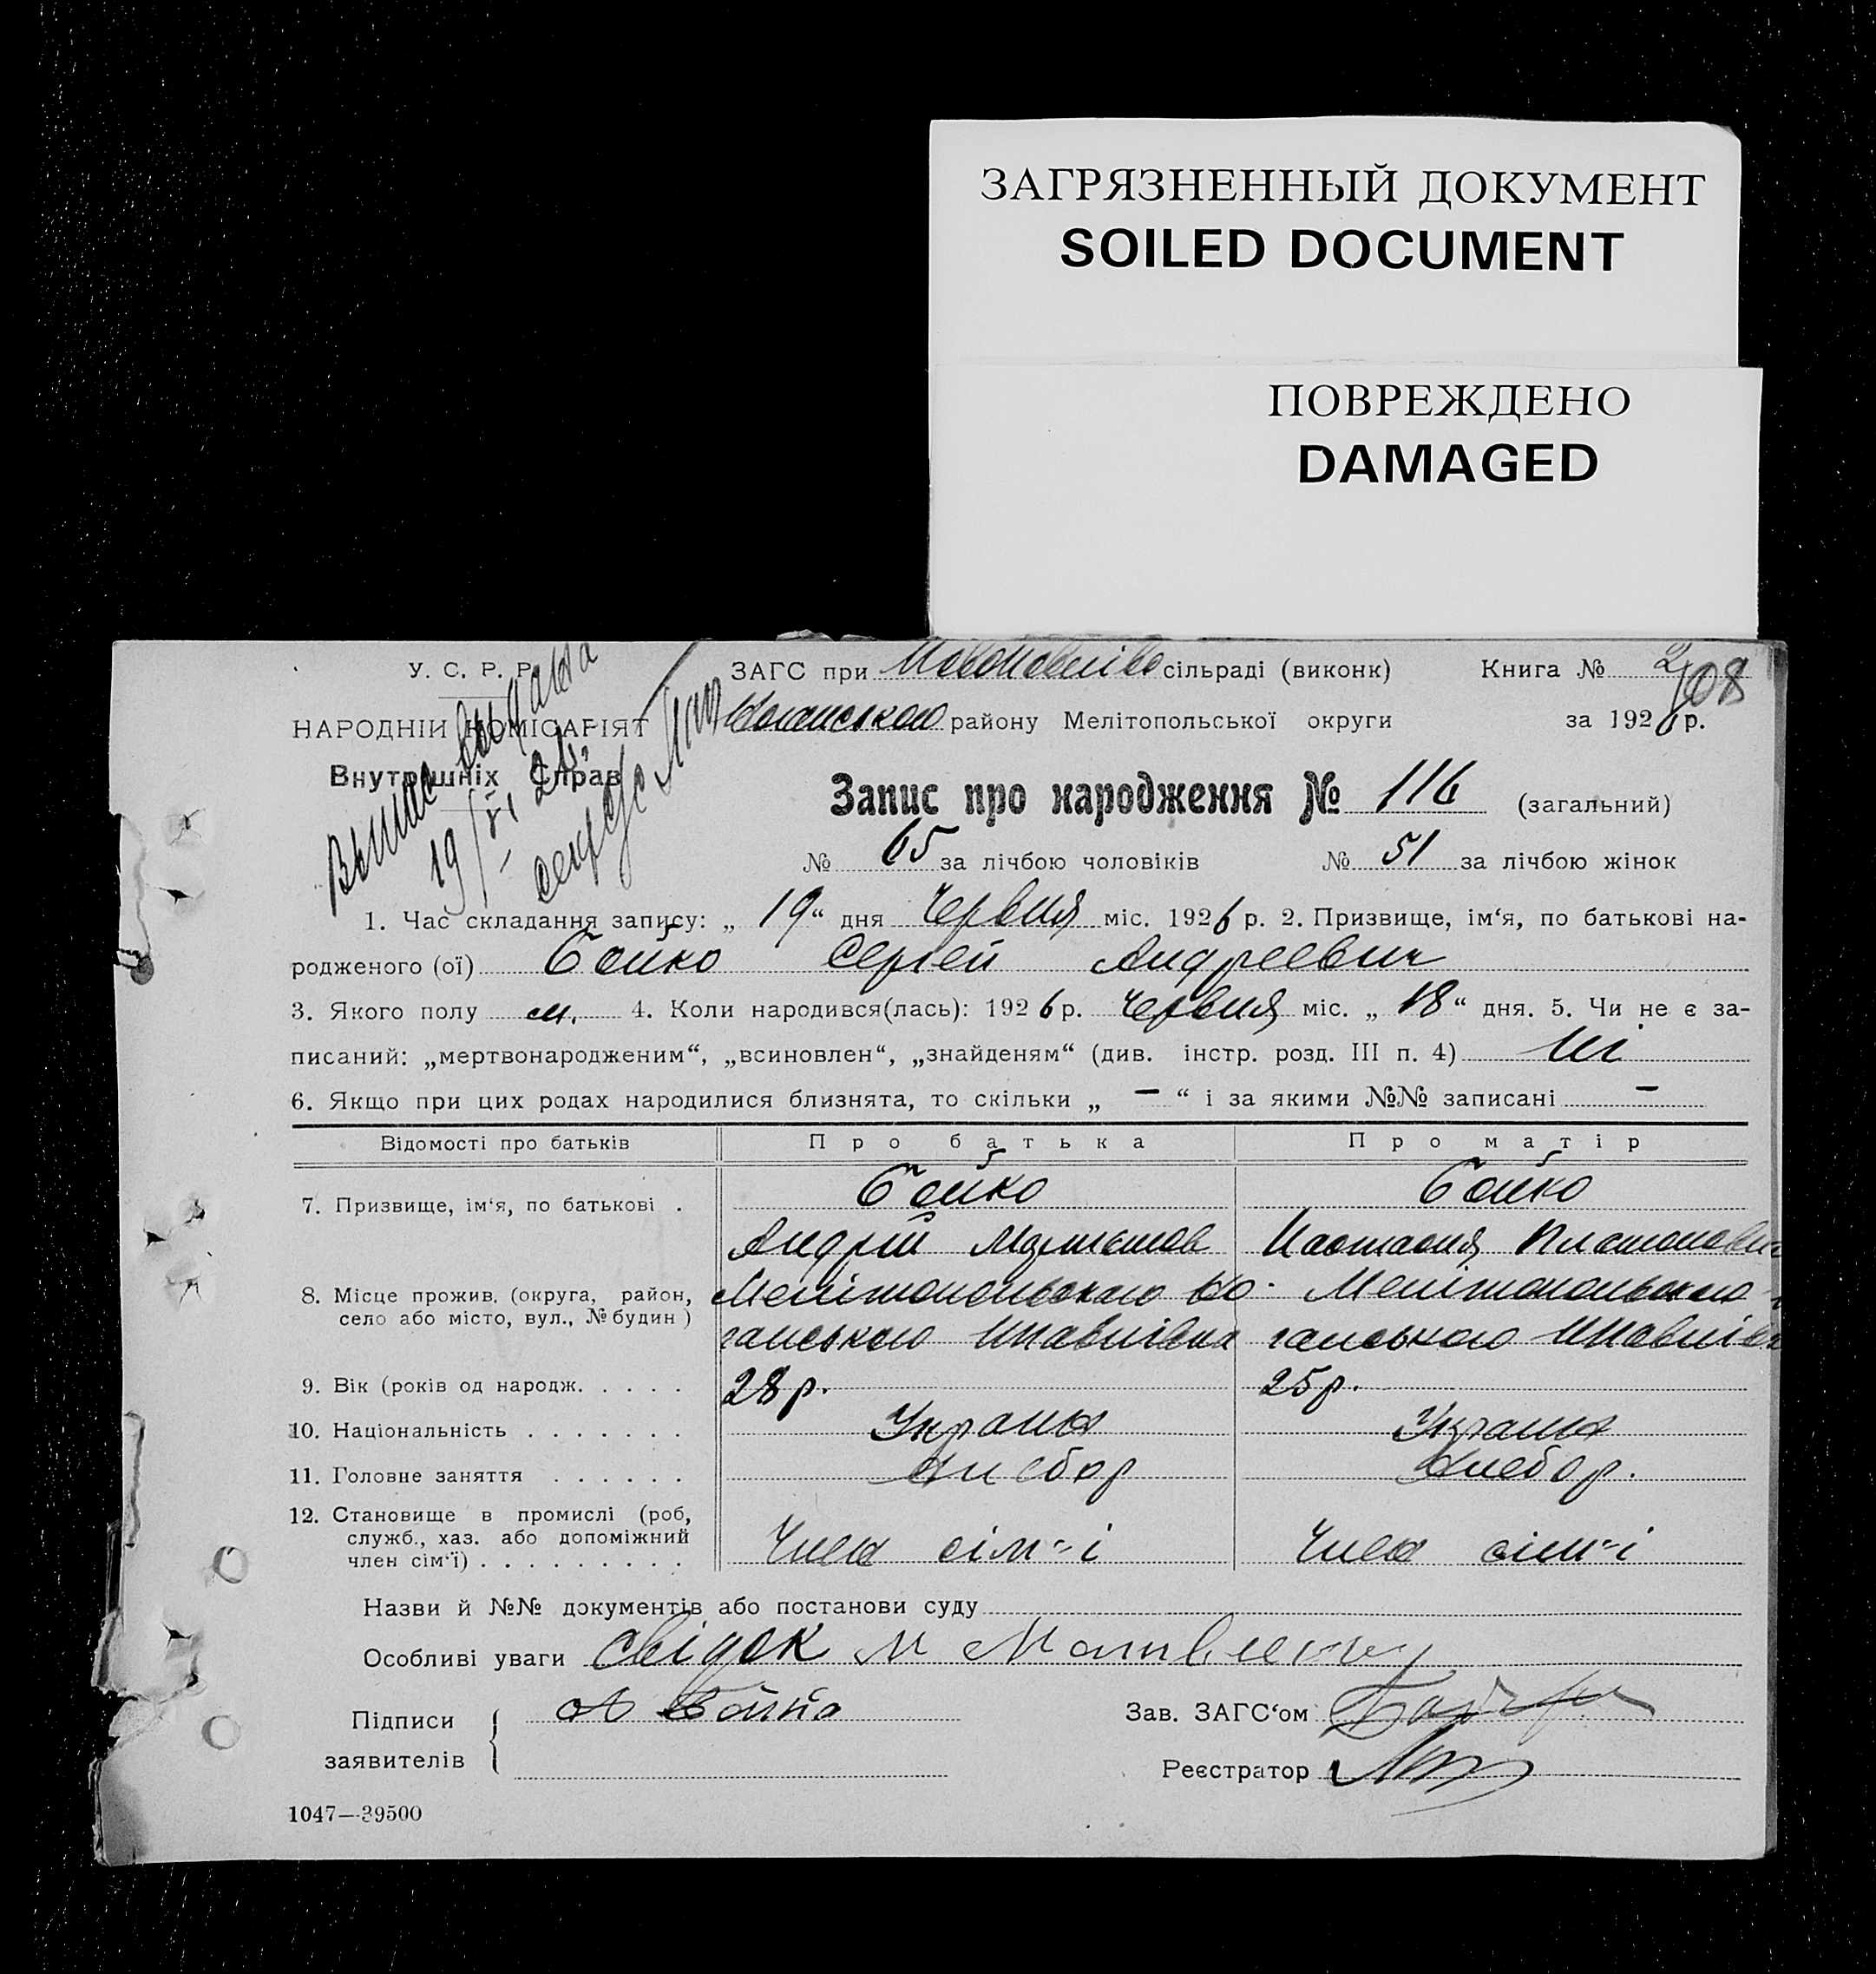 ЗАГРЯЗНЕННЫЙ ДОКУМЕНТ
SOILED DOCUMENT
ПОВРЕЖДЕНО
DAMAGED
У. С. Р. Р.
НАРОДНІЙ КОМІСАРІЯТ
Внутрішніх Справ
19/VI 26
ЗАГС при сільраді (виконк) Книга № 2
108
району Мелітопольської округи за 1926 р.
Запис про народження № 116 (загальний)
№ 65 за лічбою чоловіків № 51 за лічбою жінок
1. Час складання запису: „ 19 “ дня Червня міс. 1926 р. 2. Призвище, ім‘я, по батькові на-
родженого (ої) Бойко Сергей Андреевич
3. Якого полу м. 4. Коли народився(лась): 1926 р. Червня міс. „ 18 “ дня. 5. Чи не є за-
писаний: „мертвонародженим“, „всиновлен“, „знайденям“ (див. інстр. розд. III п. 4) Ні
6. Якщо при цих родах народилися близнята, то скільки „ – “ і за якими №№ записані –
Відомості про батьків Про батька Про матір
7. Призвище, ім‘я, по батькові . Бойко Бойко
Андрій Настасия
8. Місце прожив. (округа, район,
село або місто, вул., № будин )
Мелітопольского Мелітопольского
9. Вік (років од народж. . . . . 28 р. 25 р.
10. Національність . . . . . . . Украин Украин
11. Головне заняття . . . . . . Хлебор Хлебор.
12. Становище в промислі (роб,
служб., хаз. або допоміжний
член сім‘ї) . . . . . . . . . Член сім-і Член сім-і
Назви й №№ документів або постанови суду
Особливі уваги Свідок М
Підписи
заявителів
А Бойко
Зав. ЗАГС‘ом
Реєстратор
1047—39500